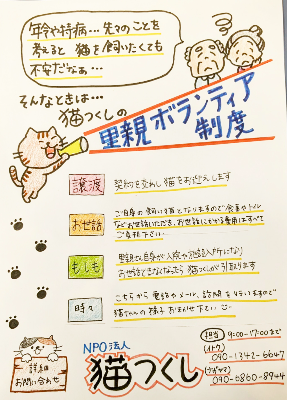 年令や持病…先々のことを
考えると 猫を飼いたくても
不安だなぁ…
そんなときは…
猫つくしの
里親ボランティア
制度
譲渡
契約を交わし猫をお迎えします
お世話
ご自身の飼い猫となりますので食事やトイレ
などお世話いただき、お世話にかかる費用はすべて
ご負担下さい
もしも
里親ご自身が入院や施設入所になり
お世話できなくなったら猫つくしが引取ります
時々
こちらから電話やメール、訪問を行いますので
猫ちゃんの様子お聞かせ下さい
詳細
お問い合わせ
NPO法人
猫つくし
担当
9:00~17:00まで
(イトウ)
090-1342-6647
090-6860-8944